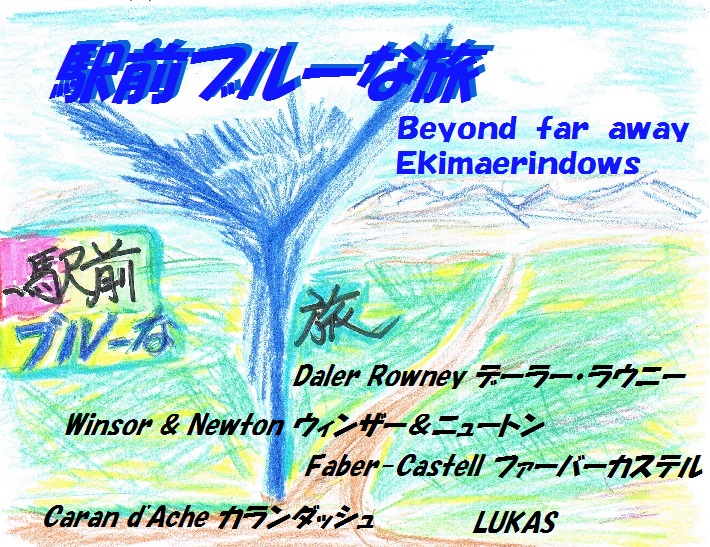 駅前ブルーな旅
Beyond far away
Ekimaerindows
駅前
ブルーな
旅
Daler Rowney デーラー・ラウニー
Winsor & Newton ウィンザー＆ニュートン
Faber-Castell ファーバーカステル
Caran d'Ache カランダッシュ
LUKAS